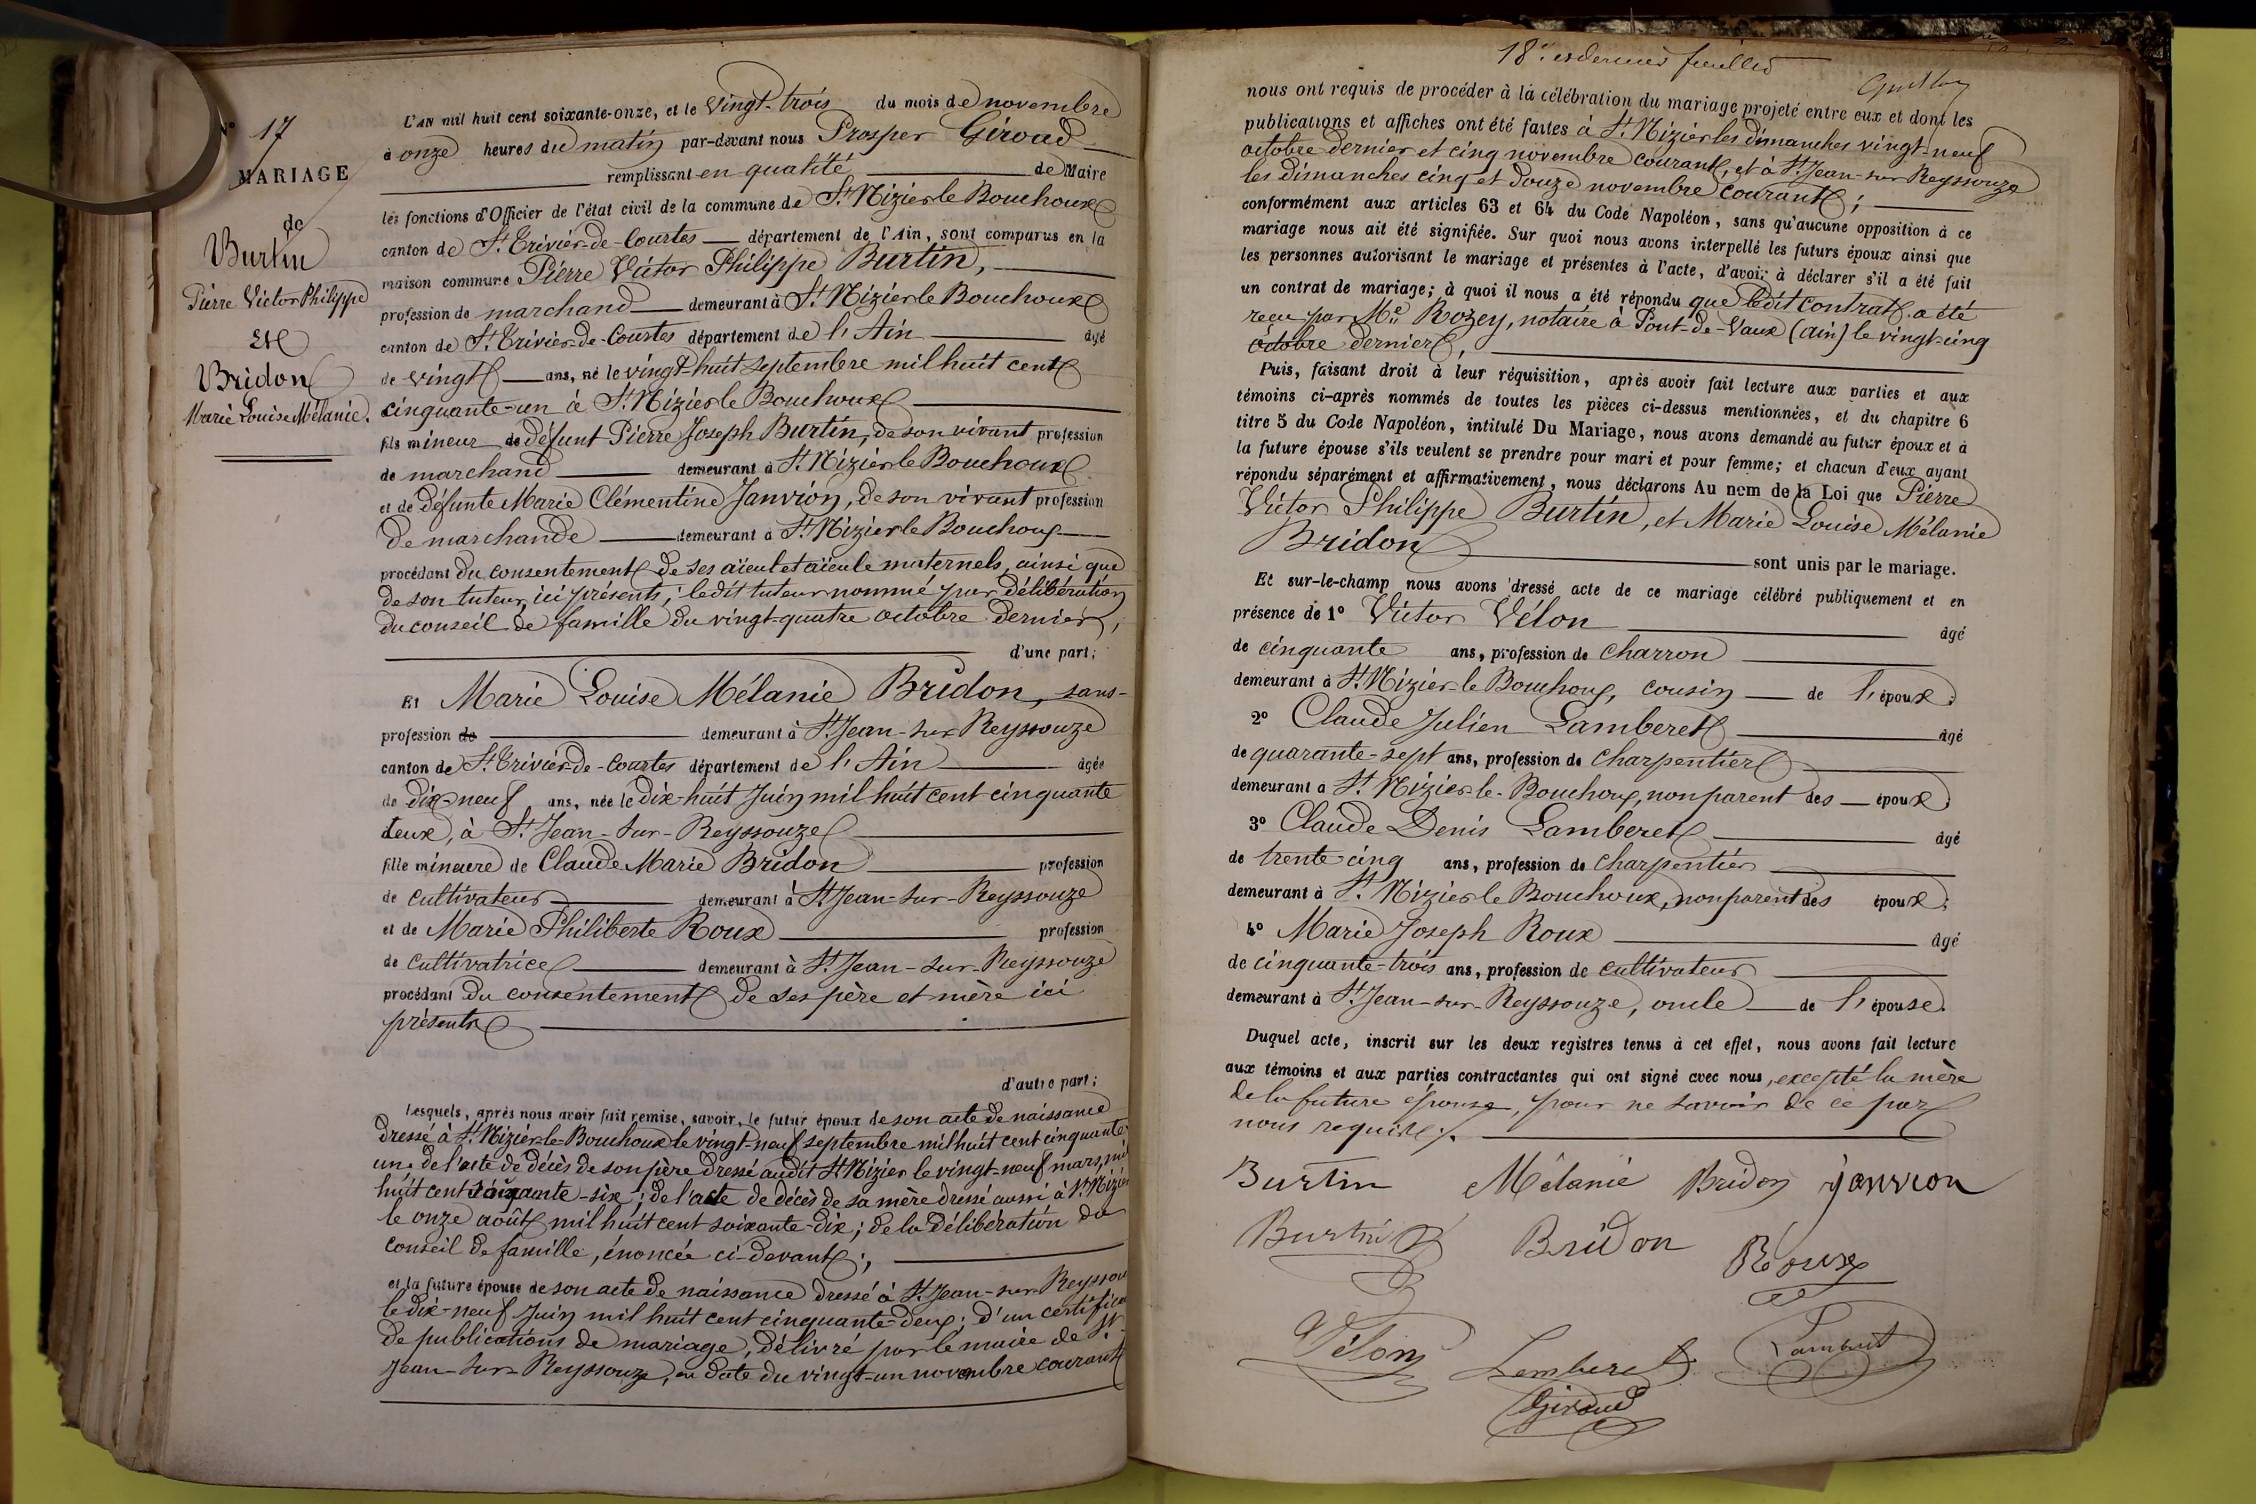 N° 17
MARIAGE
de
Burtin
Pierre Victor Philippe
Et
Bridon
Marie Louise Mélanie.
L'AN mil huit cent soixante-onze, et le Vingt-trois du mois de novembre
à onze heures du matin par-devant nous Prosper Giroud
remplissant en qualité de Maire
les fonctions d'Officier de l'état civil de la commune de St Nizier le Bouchoux
canton de St Trivier-de-Courtes département de l'Ain, sont comparus en la
maison commune Pierre Victor Philippe Burtin,
profession de marchand demeurant à St Nizier le Bouchoux
canton de St Trivier-de-Courtes département de l'Ain âgé
de vingt ans, né le vingt-huit septembre mil huit cent
cinquante-un à St Nizier le Bouchoux
fils mineur de défunt Pierre Joseph Burtin, de son vivant profession
de marchand demeurant à St Nizier le Bouchoux
et de défunte Marie Clémentine Janvion, de son vivant profession
de marchande demeurant à St Nizier le Bouchoux
procédant du consentement de ses aïeul et aïeule maternels, ainsi que
de son tuteur, ici présents; ledit tuteur nommé par délibération
du conseil de famille du vingt-quatre octobre dernier,
d'une part;
Et Marie Louise Mélanie Bridon, sans-
profession de demeurant à St Jean-sur Reyssouze
canton de St Trivier-de-Courtes département de l'Ain âgée
de dix-neuf ans, née le dix-huit Juin mil huit cent cinquante
deux, à St Jean-sur-Reyssouze
fille mineure de Claude Marie Bridon profession
de cultivateur demeurant à St Jean-sur-Reyssouze
et de Marie Philiberte Roux profession
de cultivatrice demeurant à St Jean-sur-Reyssouze
procédant du consentement de ses père et mère ici
présents
d'autre part;
Lesquels, après nous avoir fait remise, savoir, le futur époux de son acte de naissance
dressé à St Nizier-le-Bouchoux le vingt-neuf septembre mil huit cent cinquante-
un; de l'acte de décès de son père dressé audit St Nizier le vingt-neuf mars, mil
huit cent soixante-six; de l'acte de décès de sa mère dressé aussi à St Nizier
le onze août mil huit cent soixante-dix; de la délibération du
conseil de famille, énoncée ci-devant;
et la future épouse de son acte de naissance dressé à St Jean-sur-Reyssou
le dix-neuf Juin mil huit cent cinquante-deux; d'un certifica
de publications de mariage, délivré par le maire de St
Jean-sur-Reyssouze, en date du vingt-un novembre courant
18e et dernier feuillet
nous ont requis de procéder à la célébration du mariage projeté entre eux et dont les
publications et affiches ont été faites à St Nizier les dimanches vingt-neuf
octobre dernier et cinq novembre courant, et à St Jean-sur Reyssouze
les dimanches cinq et douze novembre courant;
conformément aux articles 63 et 64 du Code Napoléon, sans qu'aucune opposition à ce
mariage nous ait été signifiée. Sur quoi nous avons interpellé les futurs époux ainsi que
les personnes autorisant le mariage et présentes à l'acte, d'avoir à déclarer s'il a été fait
un contrat de mariage; à quoi il nous a été répondu que ledit contrat a été
reçu par Me Rozey, notaire à Pont-de-Vaux (ain) le vingt-cinq
octobre dernier,
Puis, faisant droit à leur réquisition, après avoir fait lecture aux parties et aux
témoins ci-après nommés de toutes les pièces ci-dessus mentionnées, et du chapitre 6
titre 5 du Code Napoléon, intitulé Du Mariage, nous avons demandé au futur époux et à
la future épouse s'ils veulent se prendre pour mari et pour femme; et chacun d'eux ayant
répondu séparément et affirmativement, nous déclarons Au nom de la Loi que Pierre
Victor Philippe Burtin, et Marie Louise Mélanie
Bridon sont unis par le mariage.
Et sur-le-champ nous avons dressé acte de ce mariage célébré publiquement et en
présence de 1° Victor Vélon âgé
de cinquante ans, profession de charron
demeurant à St Nizier-le Bouchoux, cousin de l'époux;
2° Claude Julien Lamberet âgé
de quarante-sept ans, profession de charpentier
demeurant à St Nizier-le-Bouchoux, non parent des époux;
3° Claude Denis Lamberet âgé
de trente-cinq ans, profession de charpentier
demeurant à St Nizier le Bouchoux, non parent des époux;
4° Marie Joseph Roux âgé
de cinquante-trois ans, profession de cultivateur
demeurant à St Jean-sur-Reyssouze, oncle de l'épouse.
Duquel acte, inscrit sur les deux registres tenus à cet effet, nous avons fait lecture
aux témoins et aux parties contractantes qui ont signé avec nous, excepté la mère
de la future épouse, pour ne savoir de ce par
nous requise.
Burtin Mélanie Bridon janvion
Burtin Bridon Roux
Vélon Lamberet Lamberet
Giroud